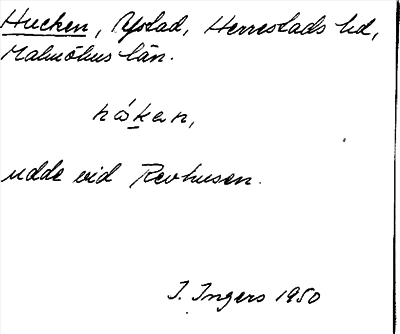 Hucken, Ystad, Herrestads hd,
Malmöhus län.
håkan,
udde vid Revhusen.
I. Ingers 1950